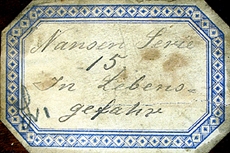 Nansen Serie
15.
In Lebens-
gefahr